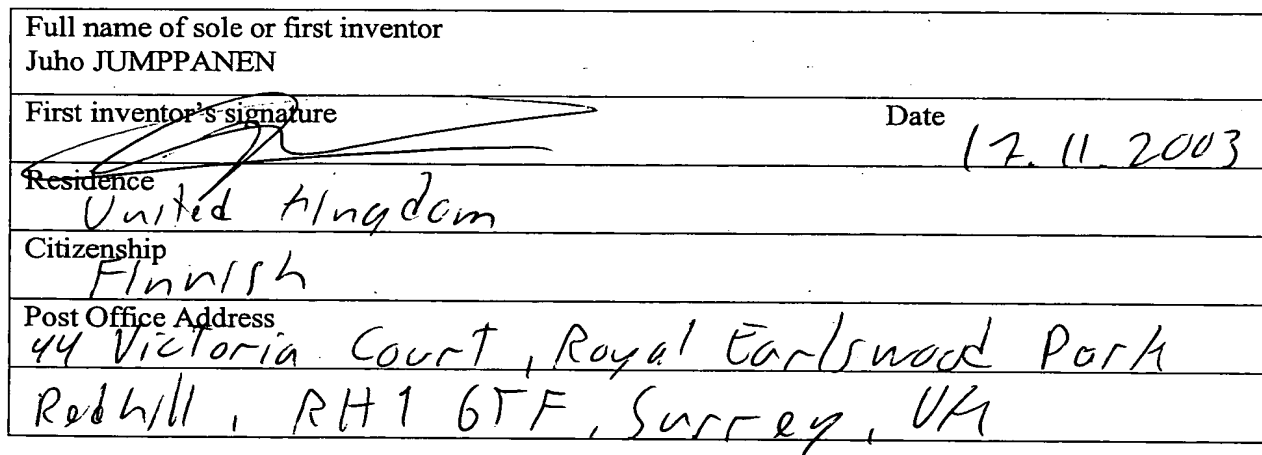 Full name of sole or first inventor
Juho JUMPPANEN
First inventor's signature Date
17. 11. 2003
Residence
United Kingdom
Citizenship
Finnish
Post Office Address
44 Victoria Court, Royal Earlswood Park
Redhill, RH1 6TF, Surrey, UK